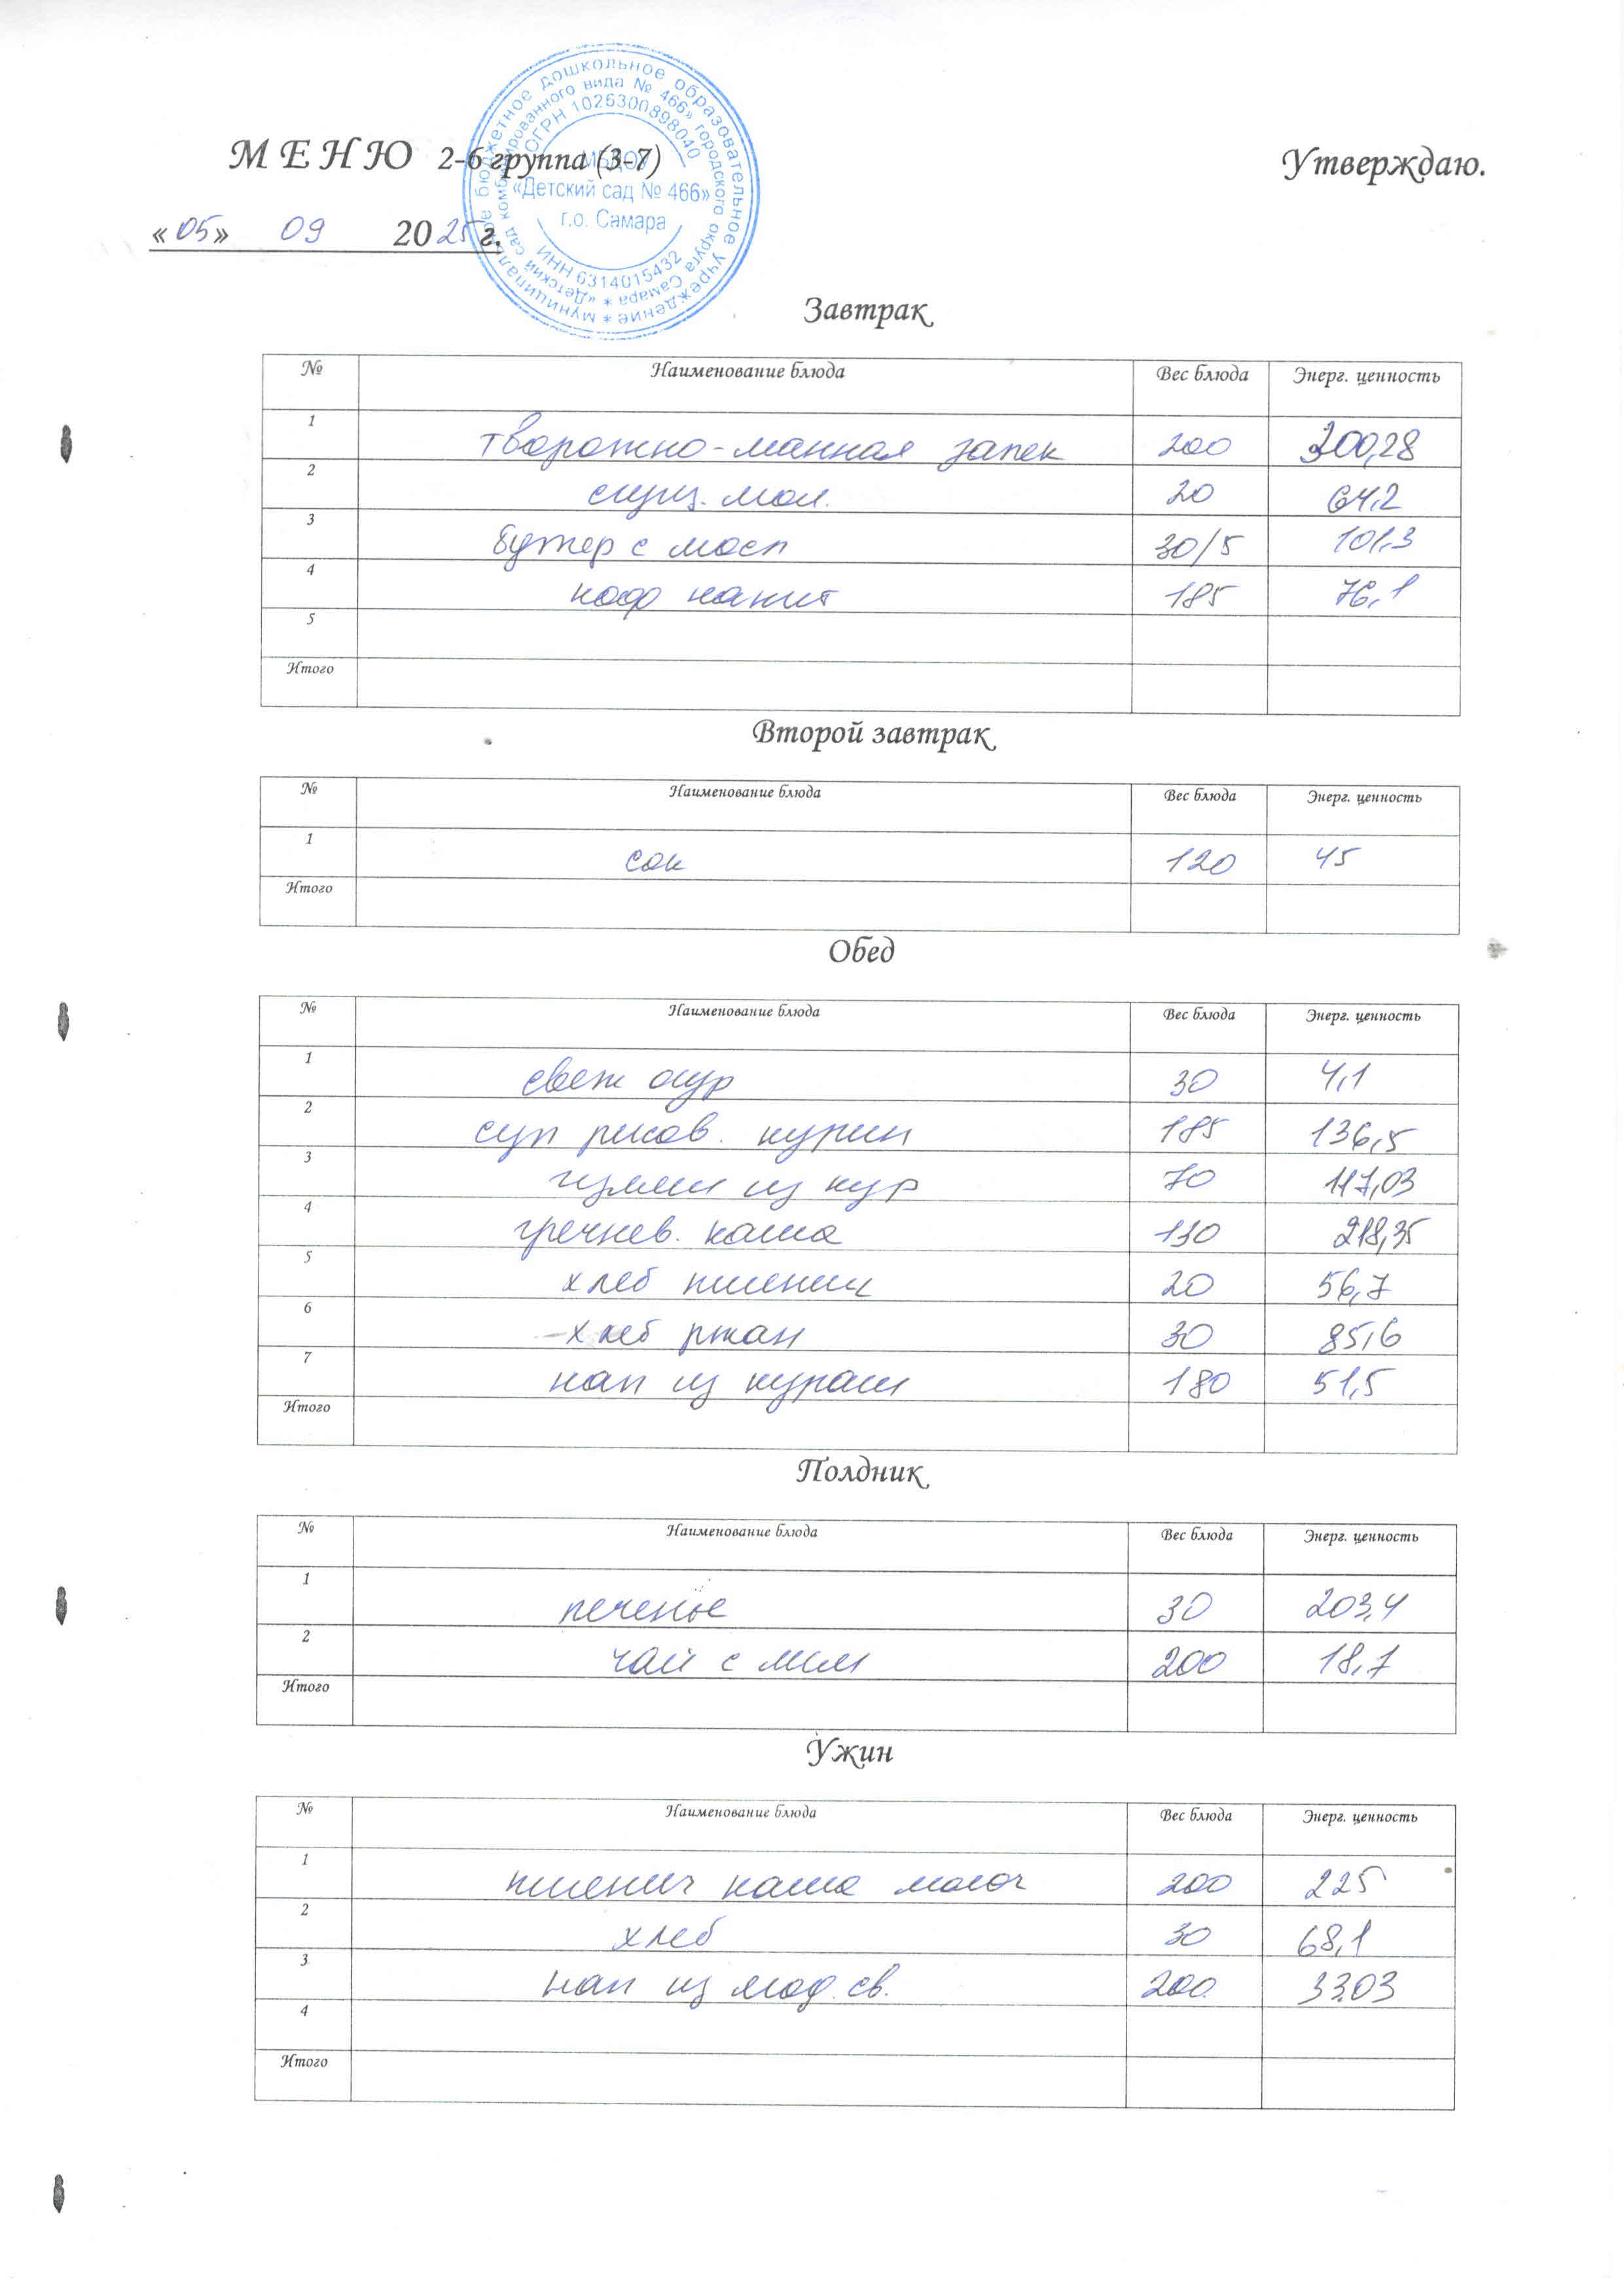 М Е Н Ю 2-6 группа (3-7) Утверждаю.
« 05 » 09 2025 г.
муниципальное бюджетное дошкольное образовательное учреждение *
«Детский сад комбинированного вида № 466» городского округа Самара *
ОГРН 1026300898040
МБДОУ
«Детский сад № 466»
г.о. Самара
ИНН 6314015432
Завтрак
№ Наименование блюда Вес блюда Энерг. ценность
1 творожно-манная запек 200 300,28
2 сгущ. мол. 20 64,2
3 бутер с масл 30/5 101,3
4 коф напит 185 76,1
5
Итого
Второй завтрак
№ Наименование блюда Вес блюда Энерг. ценность
1 сок 120 45
Итого
Обед
№ Наименование блюда Вес блюда Энерг. ценность
1 свеж огур 30 4,1
2 суп рисов. 185 136,5
3 из кур 70 117,03
4 гречнев. каша 110 218,35
5 хлеб пшенич 20 56,7
6 хлеб ржан 30 85,6
7 нап из кураги 180 51,5
Итого
Полдник
№ Наименование блюда Вес блюда Энерг. ценность
1 печенье 30 203,4
2 чай с лим 200 18,7
Итого
Ужин
№ Наименование блюда Вес блюда Энерг. ценность
1 пшенич каша молоч 200 225
2 хлеб 30 68,1
3 нап из св. 200 33,03
4
Итого